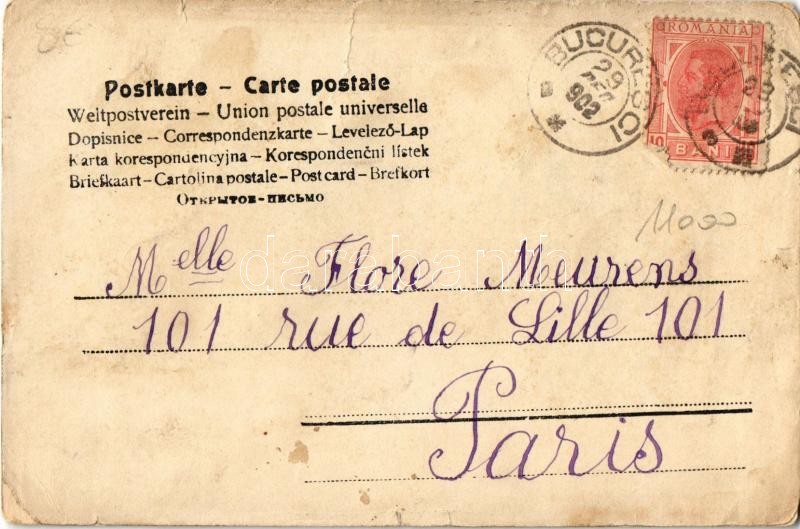 Postkarte – Carte postale
Weltpostverein – Union postale universelle
Dopisnice – Correspondenzkarte – Levelező-Lap
Karta korespondencyjna – Korespondenčni listek
Briefkaart – Cartolina postale – Post card – Brefkort
Открытое-письмо
BUCURESCI
29
902
ROMANIA
10 BANI
11000
Melle Flore Meurens
101 rue de Lille 101
Paris